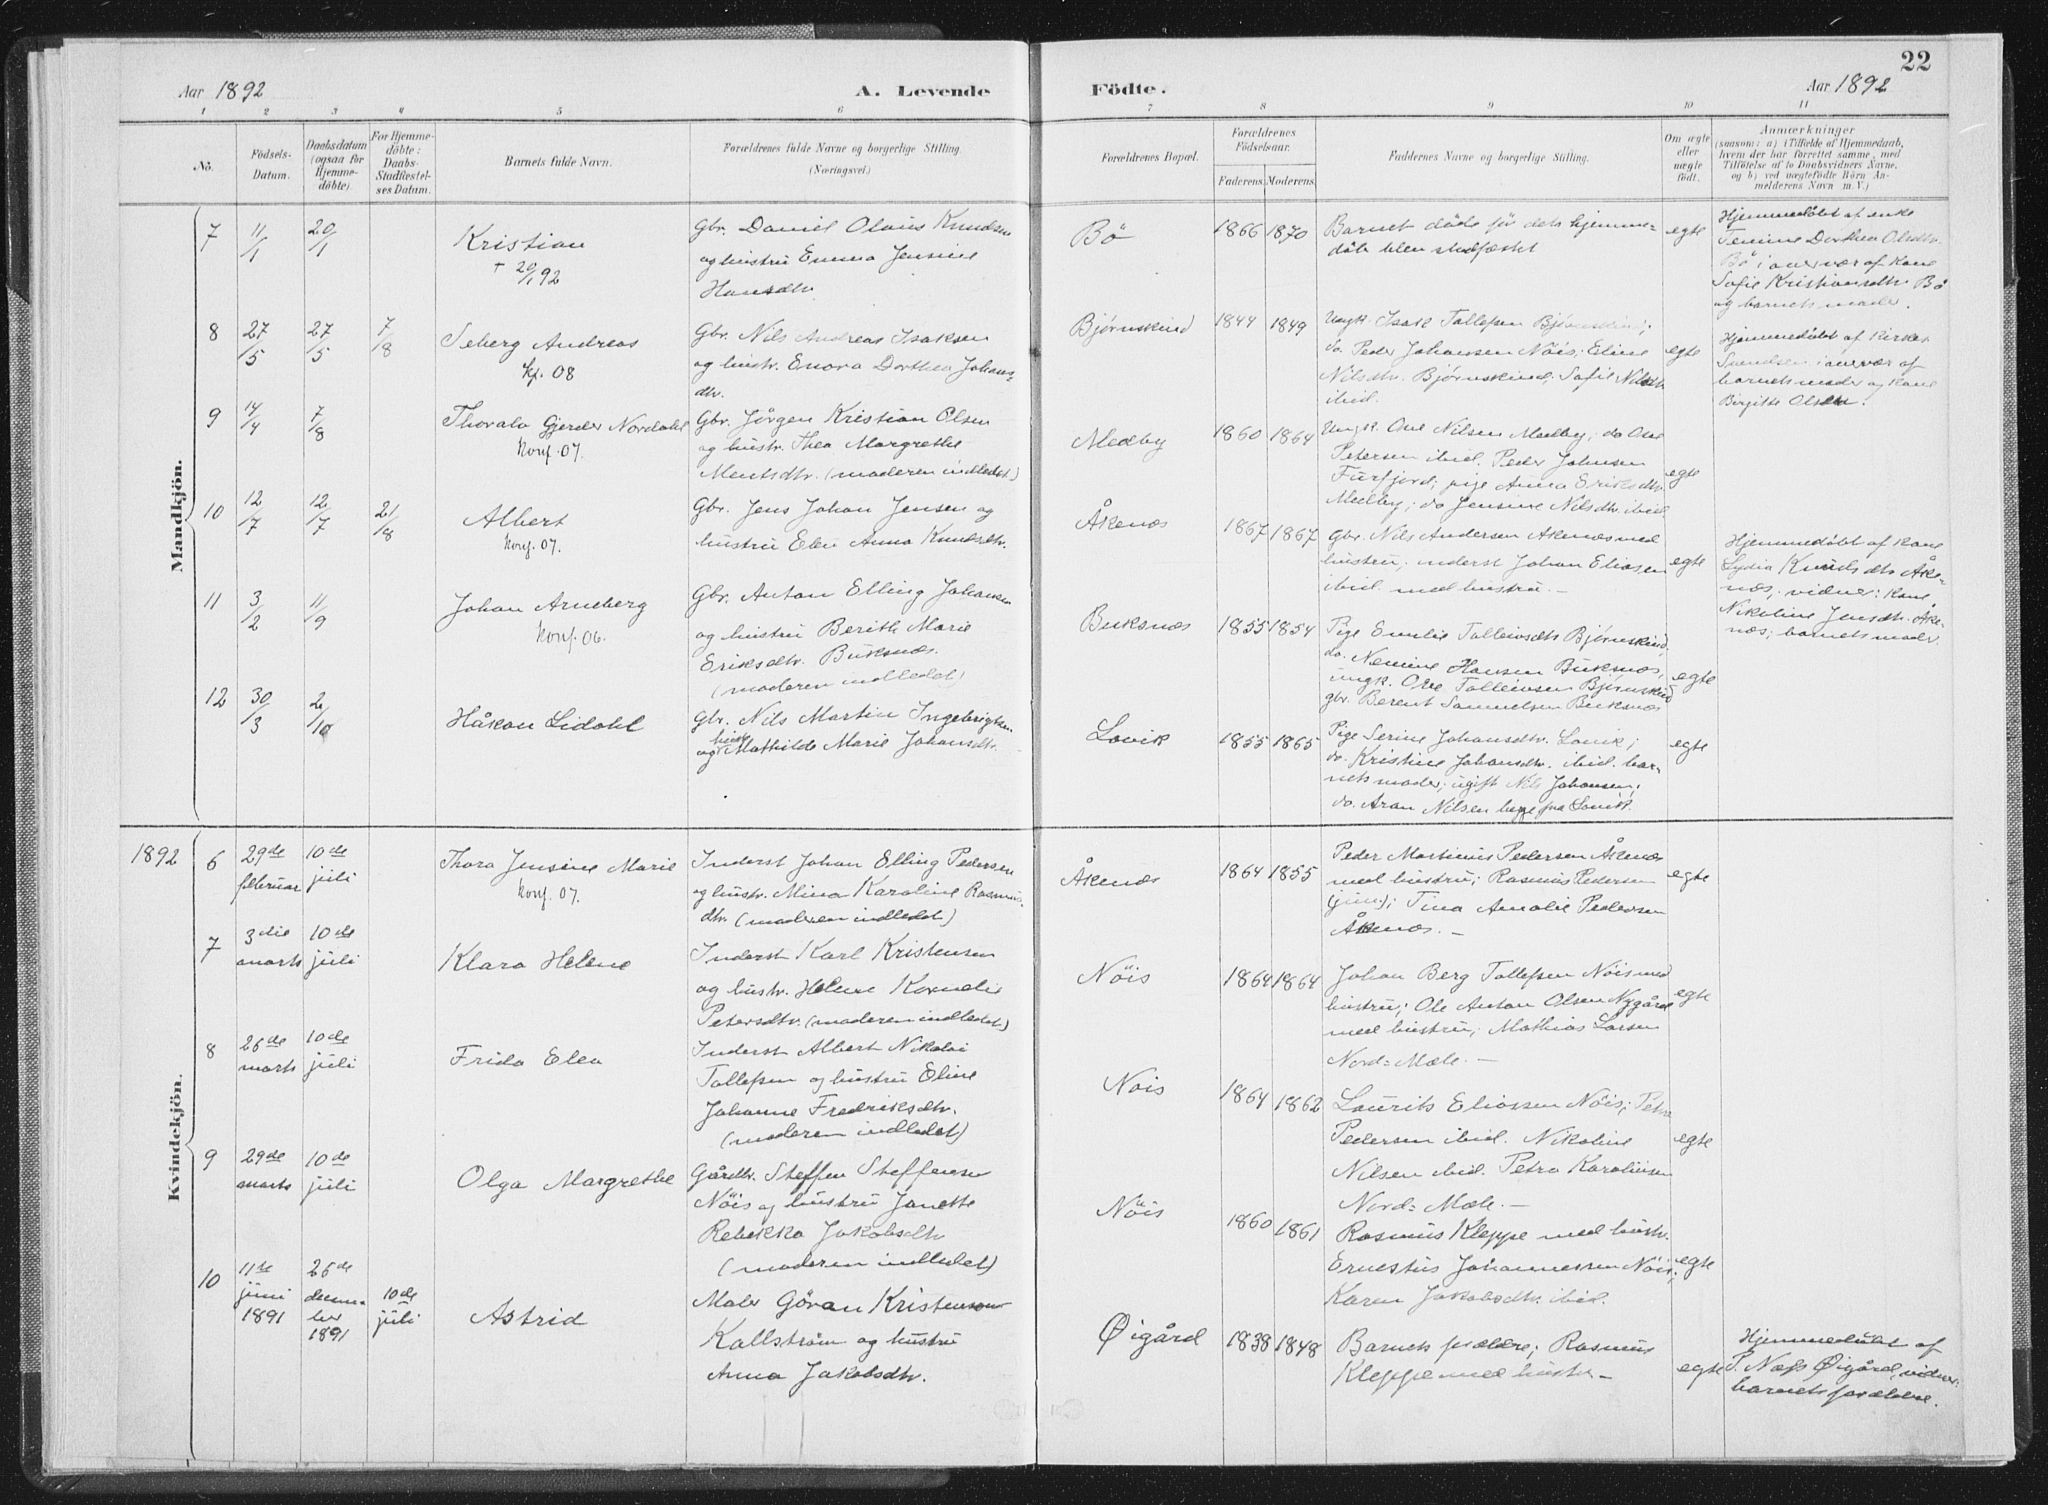 22
Aar 1892
A. Levende
Födte.
Aar 1892
1 2 3 4 5 6 7 8 9 10 11
No.
Födsels-
Datum.
Daabsdatum
(ogsaa for
Hjemme-
døbte).
For Hjemme-
døbte:
Daabs-
Stadfæstel-
ses Datum.
Barnets fulde Navn.
Forældrenes fulde Navne og borgerlige Stilling.
(Næringsvei.)
Forældrenes Bopæl.
Forældrenes
Födselsaar.
Faderens. Moderens.
Faddernes Navne og borgerlige Stilling.
Om ægte
eller
uægte
født.
Anmærkninger
(saasom: a) i Tilfælde af Hjemmedaab,
hvem der har forrettet samme, med
Tilföielse af to Daabsvidners Navne,
og b) ved uægtefödte Börn An-
melderens Navn m. V.)
Mandkjön.
7 11/1 20/1
Kristian
† 20/1 92
Gbr. Daniel Olaus Knudsen
og hustru Emma Jensine
Hansdtr.
Bö
1866 1870
Barnet døde før dets hjemme-
dåb blev stadfæstet
egte
Hjemmedøbt af enke
Dorthea Olsdtr.
Bö i overvær af kone
Sofie Kristiansdtr. Bö
og barnets moder.
8 27/5 27/5 7/8
Seberg Andreas
kf. 08
Gbr. Nils Andreas Isaksen
og hustr. Enora Dorthea Johans-
dtr.
Bjørnskind
1844 1849
Ungk. Isak Tollefsen Bjørnskind;
do. Peder Johansen Nöis; Eline
Nilsdtr. Bjørnskind; Sofie Nilsdtr.
ibid.
egte
Hjemmedøbt af kirkes.
Svendsen i overvær af
barnets moder og kone
Birgitte Olsen.
9 14/4 7/8
Thoralv Gjerder Nordahl
konf. 07.
Gbr. Jörgen Kristian Olsen
og hustr. Thea Margrethe
Mentsdtr. (moderen indledet)
Medby
1860 1864
Ungk. Ove Nilsen Medby; do Ove
Petersen ibid. Peder Johnsen
Furfjord; pige Anna Eriksdtr.
Medby; do Jensine Nilsdtr. ibid.
egte
10 12/7 12/7 21/8
Albert
konf. 07.
Gbr. Jens Johan Jensen og
hustru Elen Anna Knudsdtr.
Åkenæs
1867 1867
Gbr. Nils Andersen Åkenæs med
hustru; inderst Johan Eliasen
ibid. med hustru. –
egte
Hjemmedøbt af kone
Lydia Knudsdtr. Åke-
næs; vidner: kone
Nikoline Jensdtr. Åke-
næs; barnets moder.
11 3/2 11/9
Johan Arneberg
konf. 06.
Gbr. Anton Elling Johansen
og hustru Berith Marie
Eriksdtr. Buksnæs.
(moderen indledet)
Buksnæs
1855 1854
Pige Emilie Tolleivsdtr. Bjørnskind,
do. Nemine Hansen Buksnæs,
ungk. Ove Tolleivsen Bjørnskind
gbr. Berent Samuelsen Buksnæs
egte
12 30/3 2/10
Håkon Lidahl
Gbr. Nils Martin Ingebrigtsen
og hustr. Mathilde Marie Johansdtr.
Lovik
1855 1865
Pige Serine Johansdtr. Lovik;
do. Kristine Johansdtr. ibid. bar-
nets moder; ugift Nils Johansen;
do. Aron Nilsen begge fra Lovik.
egte
Kvindekjön.
1892 6 29de februar 10de juli
Thora Jensine Marie
konf. 07.
Inderst Johan Elling Pedersen
og hustr. Mina Karoline Rasmus-
dtr. (moderen indledet)
Åkenæs
1864 1855
Peder Martinus Pedersen Åkenæs
med hustru; Rasmus Pedersen
(jun); Tina Amalie Pedersen
Åkenæs. –
egte
7 3die marts 10de juli
Klara Helene
Inderst Karl Kristensen
og hustr. Helene Kornelie
Petersdtr. (moderen indledet)
Nöis
1864 1864
Johan Berg Tollefsen Nöis med
hustru; Ole Anton Olsen Nygård
med hustru; Mathias Larsen
Nord-Mæle. –
egte
8 26de marts 10de juli
Frida Elea
Inderst Albert Nikolai
Tollefsen og hustru Eline
Johanne Fredriksdtr.
(moderen indledet)
Nöis
1864 1862
Laurits Eliassen Nöis; Petra
Pedersen ibid. Nikoline
Nilsen ibid. Petra Karolinsen
Nord-Mæle. –
egte
9 29de marts 10de juli
Olga Margrethe
Gårdbr. Steffen Steffensen
Nöis og hustru Janette
Rebekka Jakobsdtr.
(moderen indledet)
Nöis
1860 1861
Rasmus Kleppe med hustr.
Ernestus Johannessen Nöis;
Karen Jakobsdtr. ibid.
egte
10 11te juni 1891 26de decem-
ber 1891 10de juli
Astrid
Maler Göran Kristenson
Kallström og hustru
Anna Jakobsdtr.
Øigård
1838 1848
Barnets forældre; Rasmus
Kleppe med hustr. –
egte
Hjemmedøbt af
P. Næss Øigård, vidner:
barnets forældre.